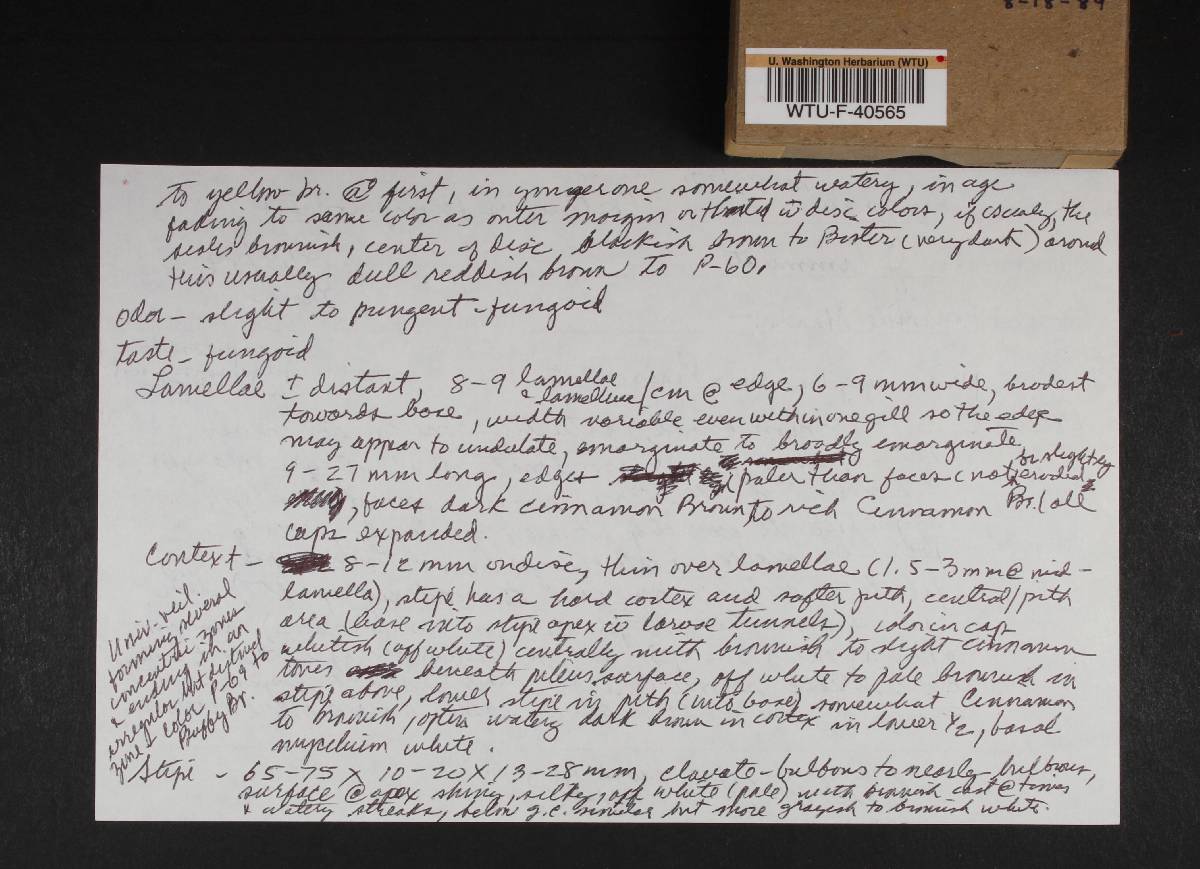 8-18-89
U. Washington Herbarium (WTU)
WTU-F-40565
to yellow br. @ first, in younger one somewhat watery, in age
fading to same color as outer margin or disc colors, if scaly, the
scales brownish, center of disc blackish brown to Bister (very dark) around
this usually dull reddish brown to P-60.
odor - slight to pungent-fungoid
taste - fungoid
Lamellae ± distant, 8-9 lamellae & lamellulae/cm @ edge, 6-9 mm wide, brodest
towards base, width variable even within one gill so the edge
may appear to undulate, emarginate to broadly emarginate,
9-27 mm long, edges paler than faces (not or slightly eroded)
, faces dark cinnamon Brown to rich Cinnamon Br. (all
caps expanded.
Context - 8-12 mm on disc, thin over lamellae (1.5-3 mm @ mid-
lamella), stipe has a hard cortex and softer pith, central/pith
area (base into stipe apex w larvae tunnels), color in cap
whitish (off white) centrally with brownish to slight cinnamon
tones beneath pileus surface, off white to pale brownish in
stipe above, lower stipe in pith (into base) somewhat Cinnamon
to brownish, often watery dark brown in cortex in lower ½, basal
mycelium white.
Univ. veil.
forming several
concentric zones
& ending in an
irregular but distinct
zone ± color P-69 to
Buffy Br.
Stipe - 65-75 x 10-20 x 13-28 mm, clavate-bulbous to nearly bulbous,
surface @ apex shiny, silky, off white (pale) with brownish cast @ times
& watery streaks, below g.c. similar but more grayish to brownish white.